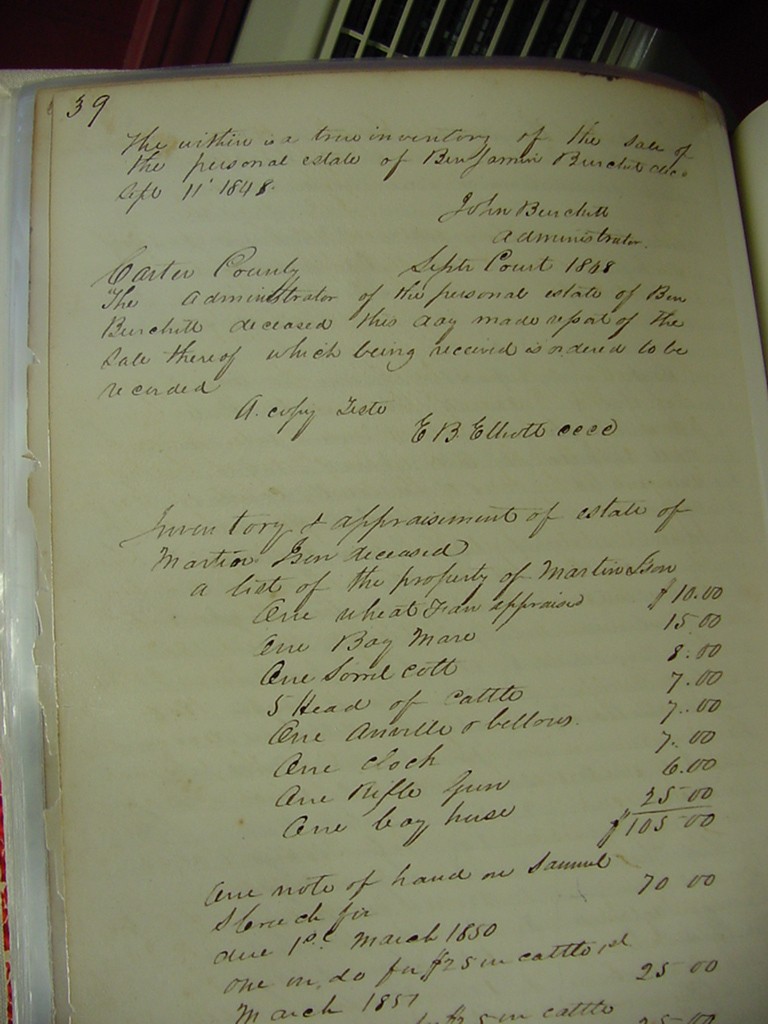 39
The within is a true inventory of the sale of
the personal estate of Benjamin Burchett decd
Sept 11 1848.
John Burchett
Administrator.
Carter County Septr Court 1848
The Administrator of the personal estate of Ben
Burchett deceased this day made report of the
Sale thereof which being received is ordered to be
recorded
A. copy Teste
E B. Elliott cccc
Inventory & appraisement of estate of
Martin deceased
a list of the property of Martin
One wheat Fan appraised $10.00
One Bay Mare 15.00
One Sorrel Colt 8.00
5 Head of Cattle 7.00
One Anville & bellows. 7.00
One Clock 7.00
One Rifle Gun 6.00
One bay horse 25 00
$105 00
One note of hand on Samuel
for 70 00
due 1st March 1850
one on do for $25 in cattle 1st
March 1851 25 00
$25 in cattle 25 00